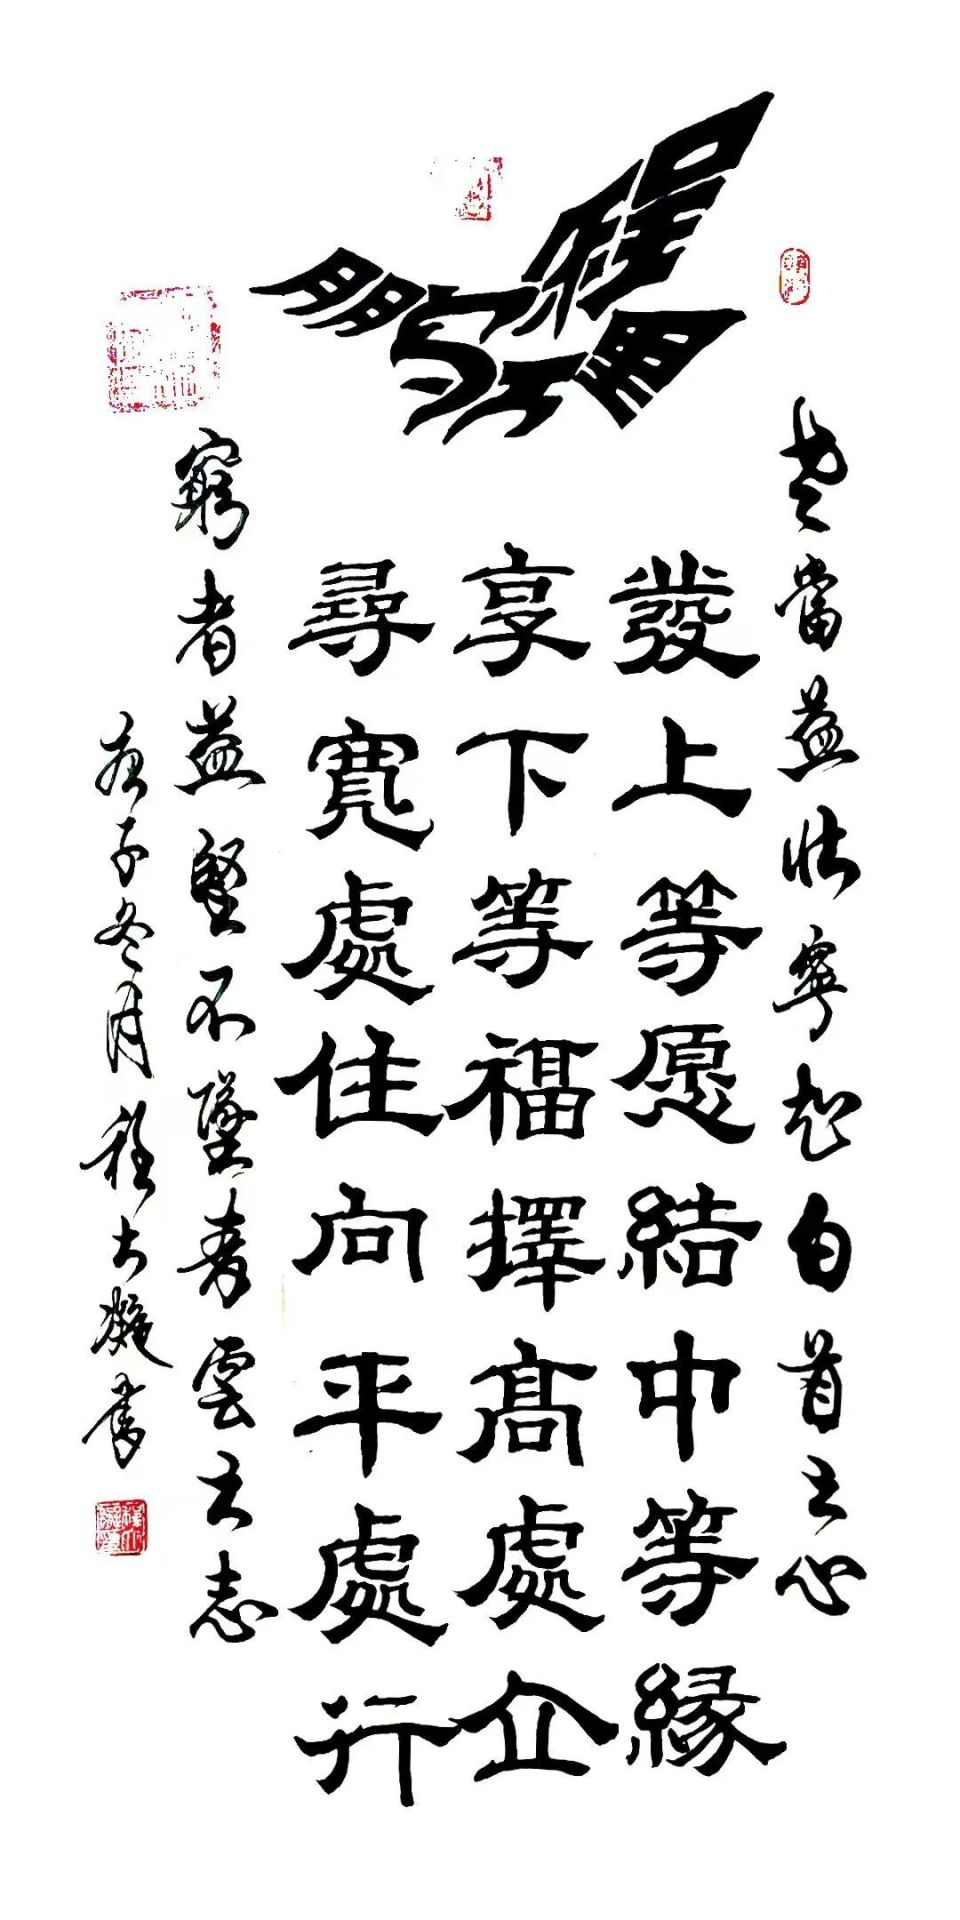 鹏程万里
老當益壯寧知白首之心
發上等愿結中等緣
享下等福擇高處立
尋寬處住向平處行
窮者益堅不墜青雲之志
庚子冬月程書